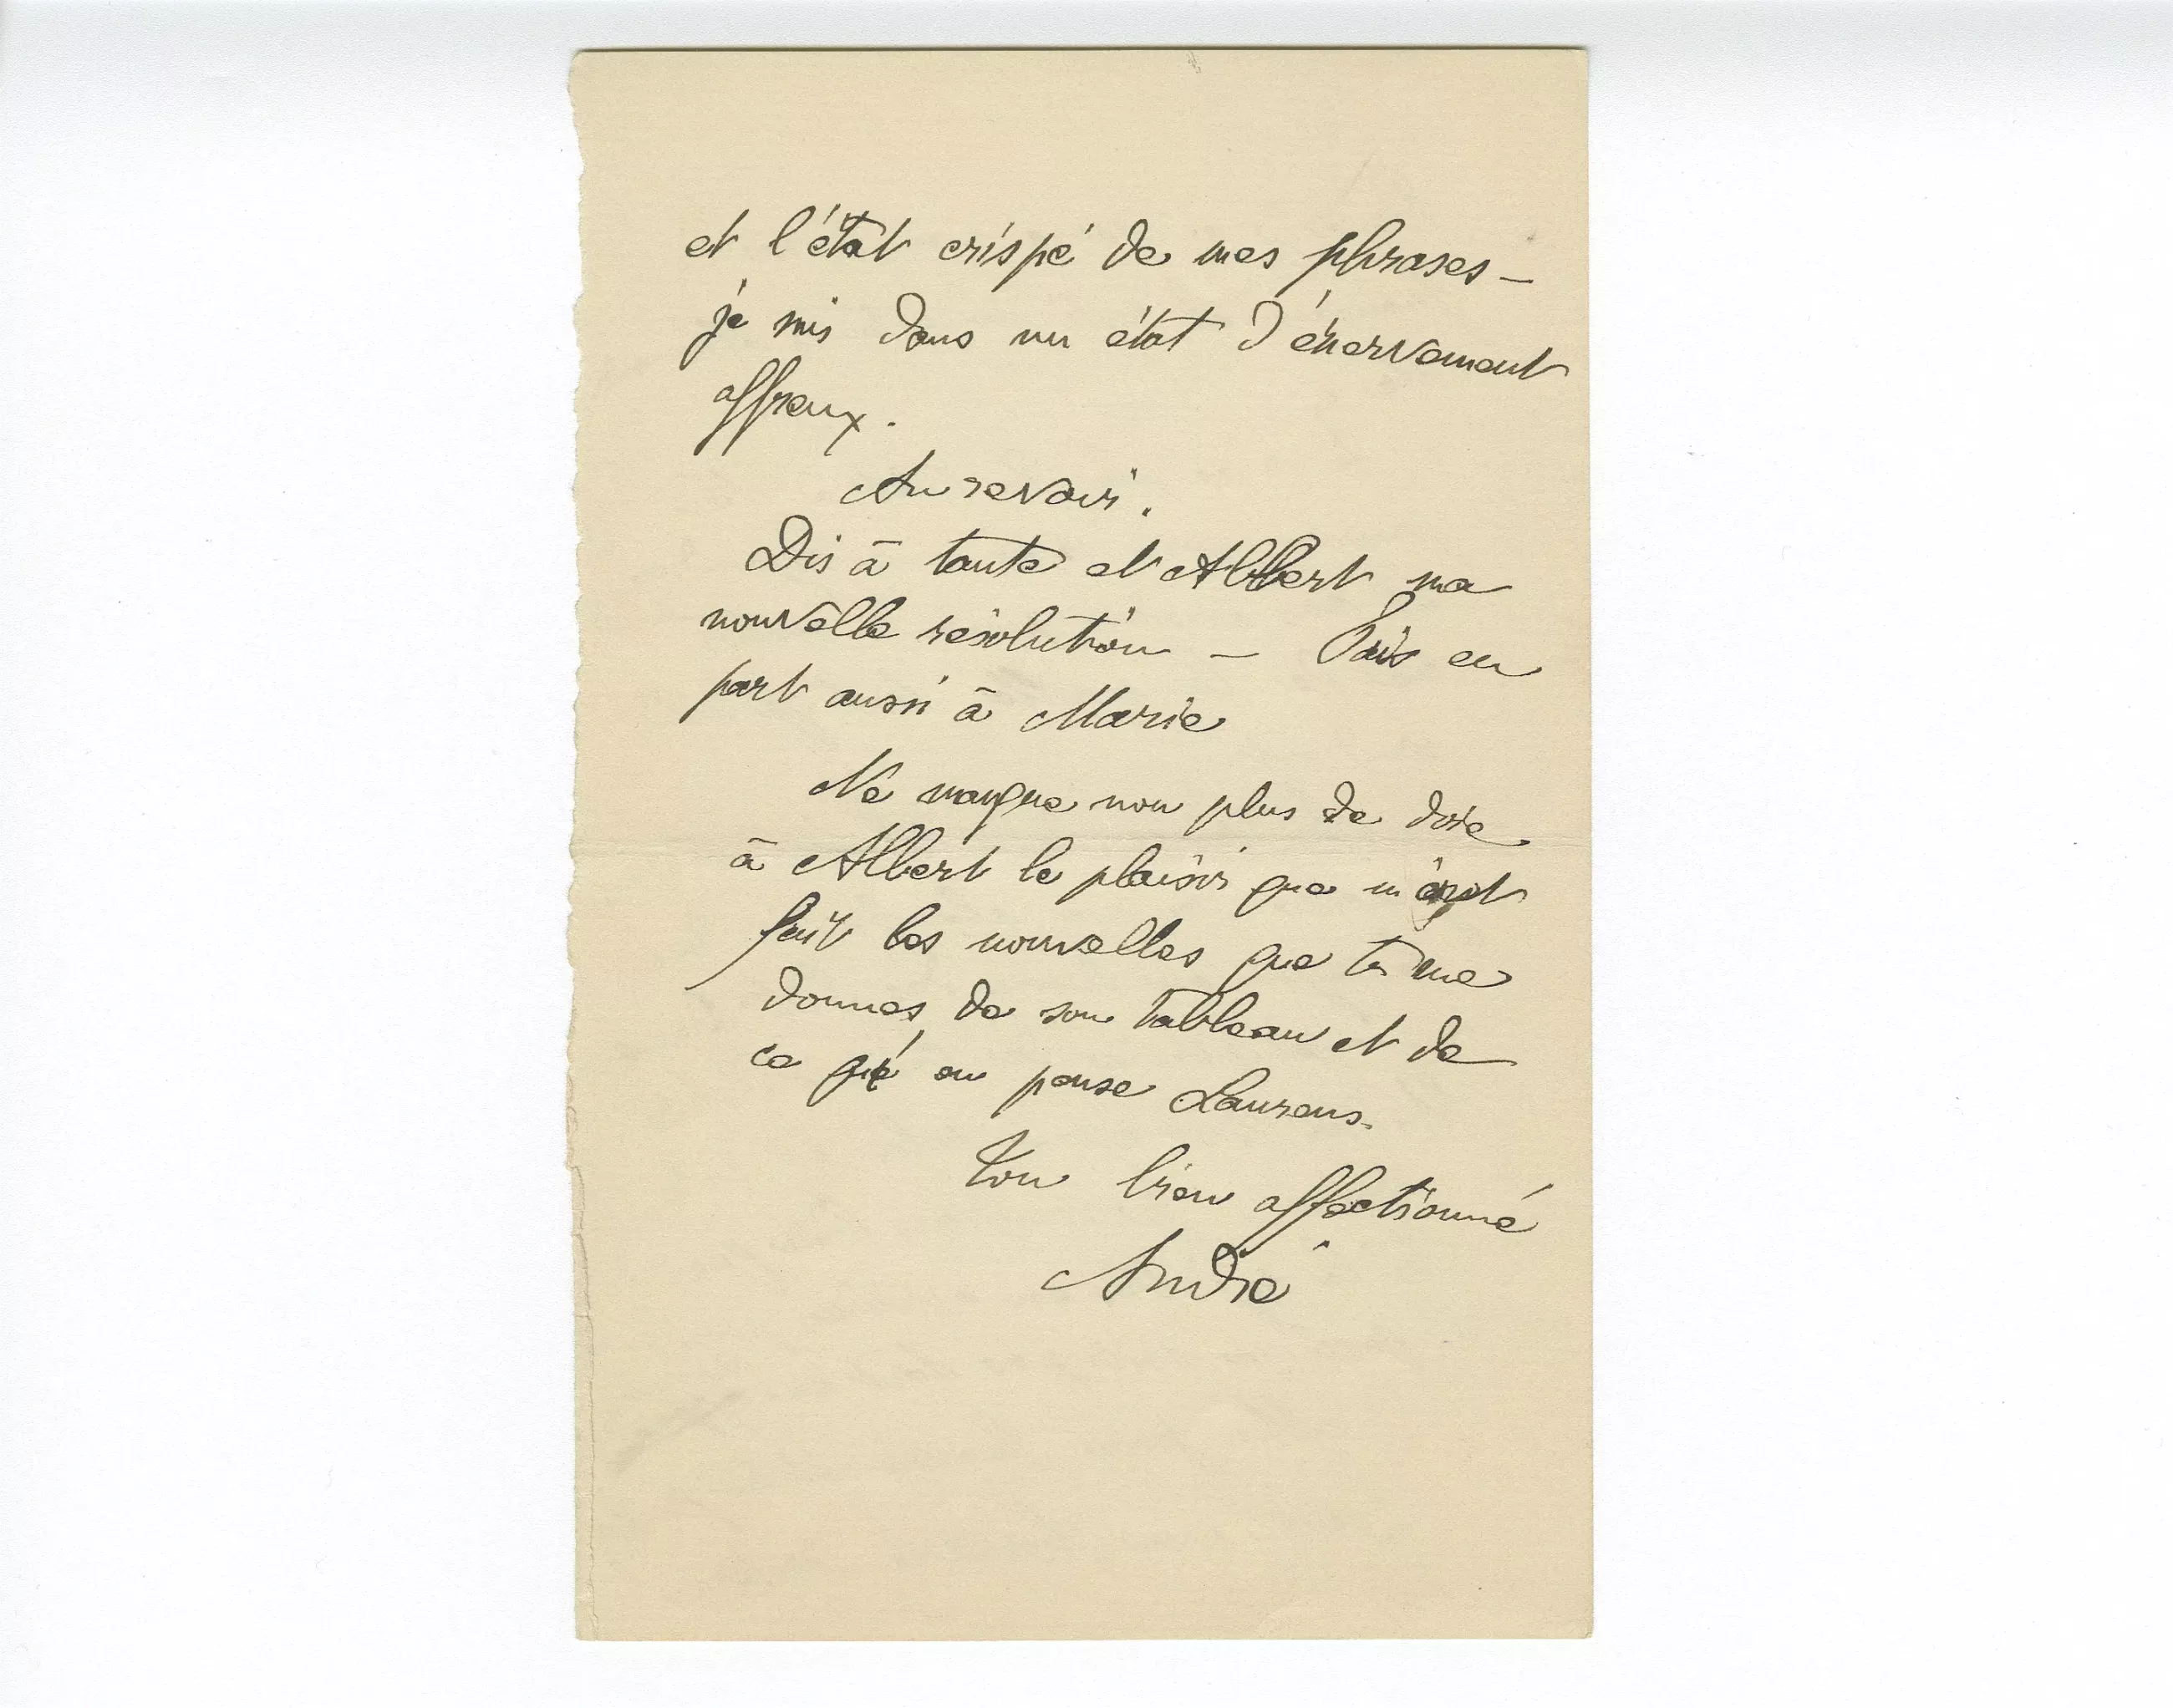 et l'état crispé de mes phrases —
je suis dans un état d'énervement
affreux.
Au revoir.
Dis à tante et Albert ma
nouvelle résolution — Fais en
part aussi à Marie
Ne manque non plus de dire
à Albert le plaisir que m'ont
fait les nouvelles que tu me
donnes de son tableau et de
ce qu'en pense Laurens.
Ton bien affectionné
André